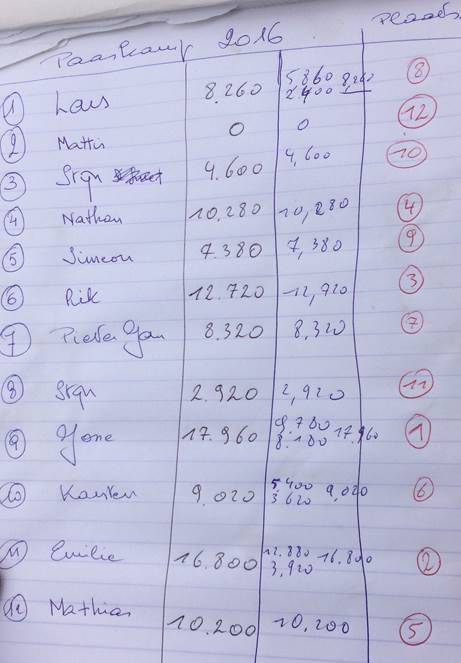 Paaskamp 2016 Plaats
1 Lars 8.260 5860 8,260 8
2400
2 Mattis 0 0 12
3 Stijn 4.600 4,600 10
4 Nathan 10.280 10,280 4
5 Simeon 7.380 7,380 9
6 Rik 12.720 12,720 3
7 Pieter Jan 8.320 8,320 7
8 Stijn 2.920 2,920 11
9 Yone 17.960 9.780 17.960 1
8.180
10 Karsten 9.020 5400 9,020 6
3620
11 Emilie 16.800 12.880 16,800 2
3,920
12 Mathias 10.200 10,200 5